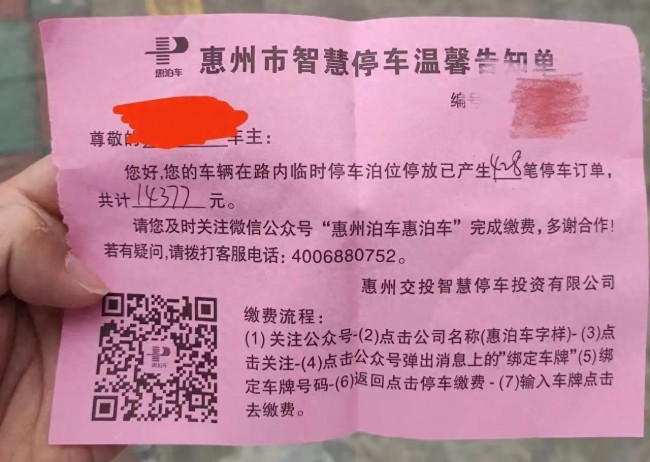 惠州市智慧停车温馨告知单
惠泊车
编号
尊敬的 车主：
您好,您的车辆在路内临时停车泊位停放已产生 笔停车订单,
共计14377元。
请您及时关注微信公众号“惠州泊车惠泊车”完成缴费,多谢合作!
若有疑问,请拨打客服电话：4006880752。
惠州交投智慧停车投资有限公司
缴费流程：
(1)关注公众号-(2)点击公司名称(惠泊车字样)-(3)点
击关注-(4)点击公众号弹出消息上的"绑定车牌"(5)绑
定车牌号码-(6)返回点击停车缴费-(7)输入车牌点击
去缴费。
惠泊车